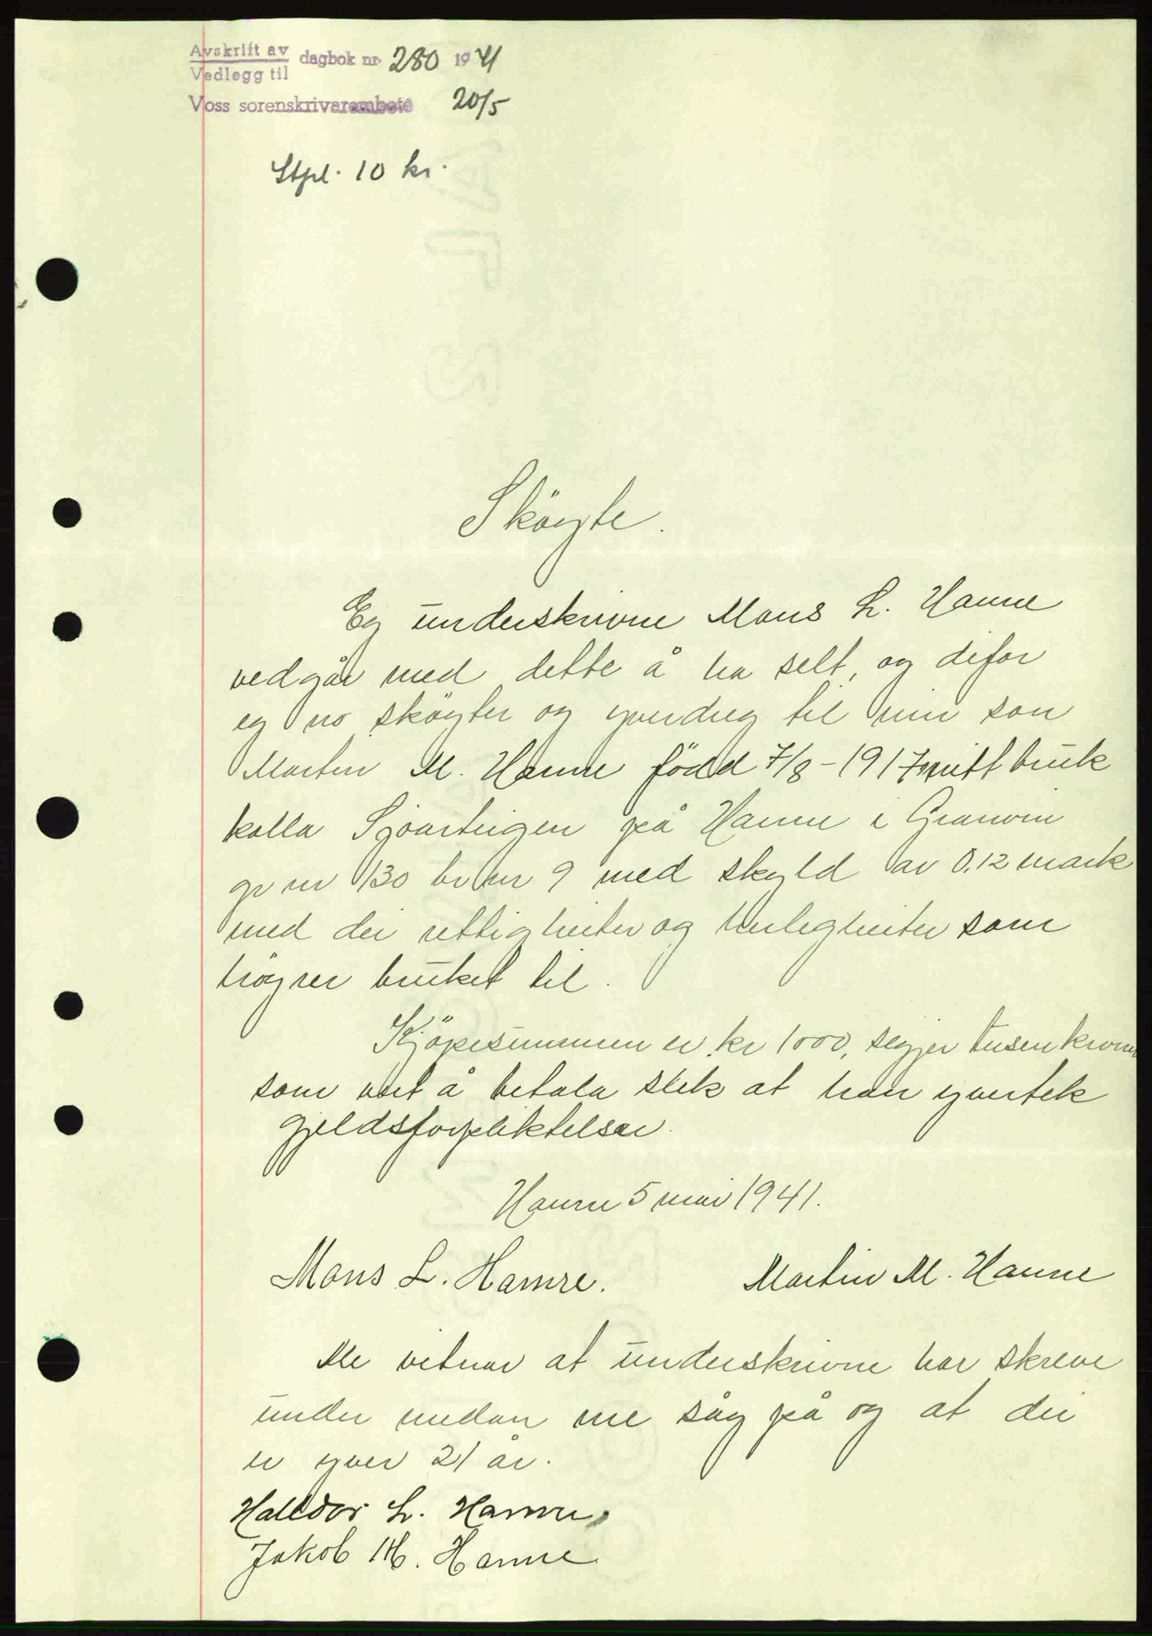 Avskrift av
Vedlegg til
dagbok nr. 280 1941
Voss sorenskrivarembete 20/5
Stpl. 10 kr.
Sköyte.
Eg underskrivne Mons L. Hamre
vedgår med dette å ha selt, og difor
eg no sköyter og yverdreg til min son
Martin M. Hamre född 7/8-1917 mitt bruk
kalla Sjoarteigen på Hamre i Granvin
gr nr 130 br nr 9 med skyld av 0,12 mark
med dei rettigheiter og herlegheiter som
höyrer bruket til.
Kjöpesummen er kr 1000, segjer tusen kroner
som vert å betala slik at han yvertek
gjeldsforpliktelser.
Hamre 5 mai 1941.
Mons L. Hamre.
Martin M. Hamre
Me vitnar at underskrivne har skreve
under medan me såg på og at dei
er yver 21 år.
Halldor L. Hamre,
Jakob M. Hamre